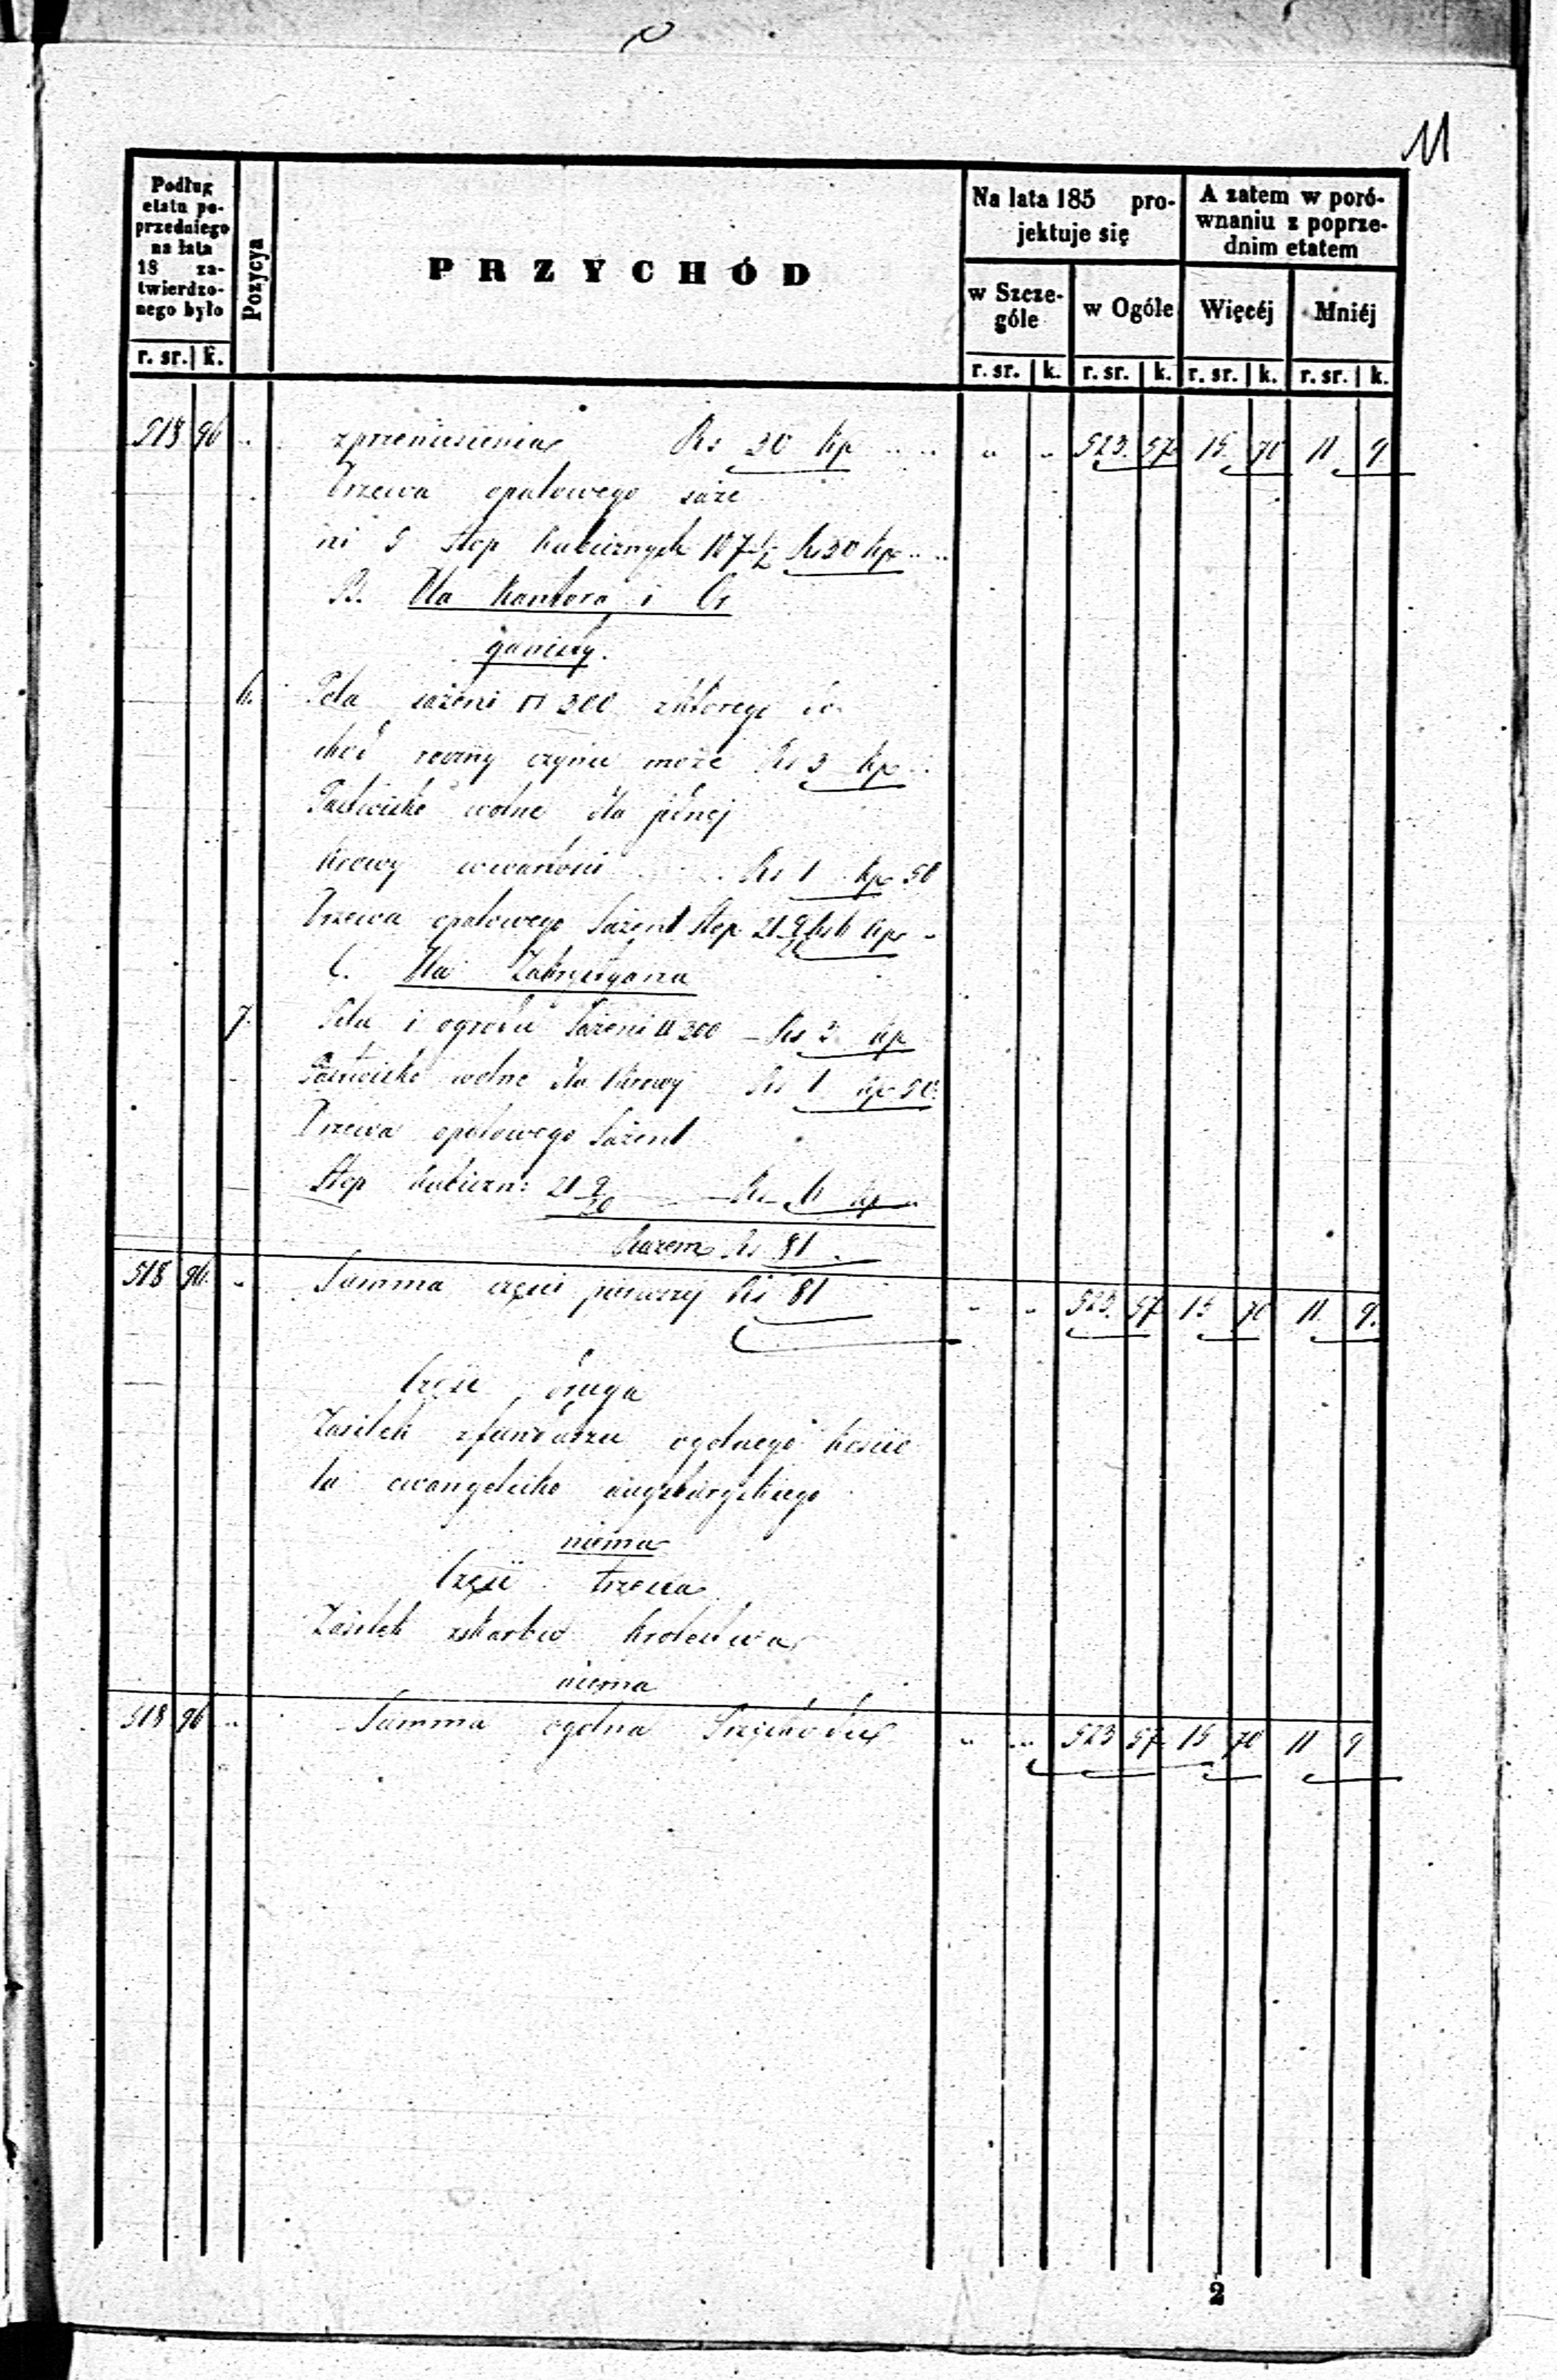 11
Podług etatu poprzedniego na lata 18 zatwierdzonego było
Pozycya
PRZYCHÓD
Na lata 185 projektuje się
A zatem w porównaniu z poprzednim etatem
w Szczególe
w Ogóle
Więcéj
Mniéj
r. sr. k. r. sr. k. r. sr. k. r. sr. k. r. sr. k.
518 96 „ z przeniesienia Rs 30 Kp „ „ „ „ 523 57 15 70 11 9
Drzewa opałowego saże
ni 5 Stop Kubicznych 107 1/2 Rs 30 Kp „
B. Dla Kantora i Or
ganisty.
6. Pola sażeni □ 300 z którego do
chod roczny czynić może Rs 3 Kp „
Pastwisko wolne dla jednej
Krowy wwartości Rs 1 Kp 50
Drzewa opałowego Sażeń 1 Stop 21 Rs 6 Kp „
C. Dla Zakrystyana
7. Pola i ogrodu Sażeni □ 300 — Rs 3 Kp
Pastwisko wolne dla 1 Krowy Rs 1 Kp 50
Drzewa opałowego Sażeń 1
Stop Kubiczn: 21 Rs 6 Kp „
Razem Rs 81 „
518 96 „ Summa części pierwszej Rs 81 „ „ 523 57 15 70 11 9.
Część druga
Zasiłek z funduszu ogolnego Kościo
ła ewangelicko augsburgskiego
niema
Część trzecia
Zasiłek z skarbu Krolestwa
niema
518 96 „ Summa ogolna Przychodu „ „ 523 57 15 70 11 9
2